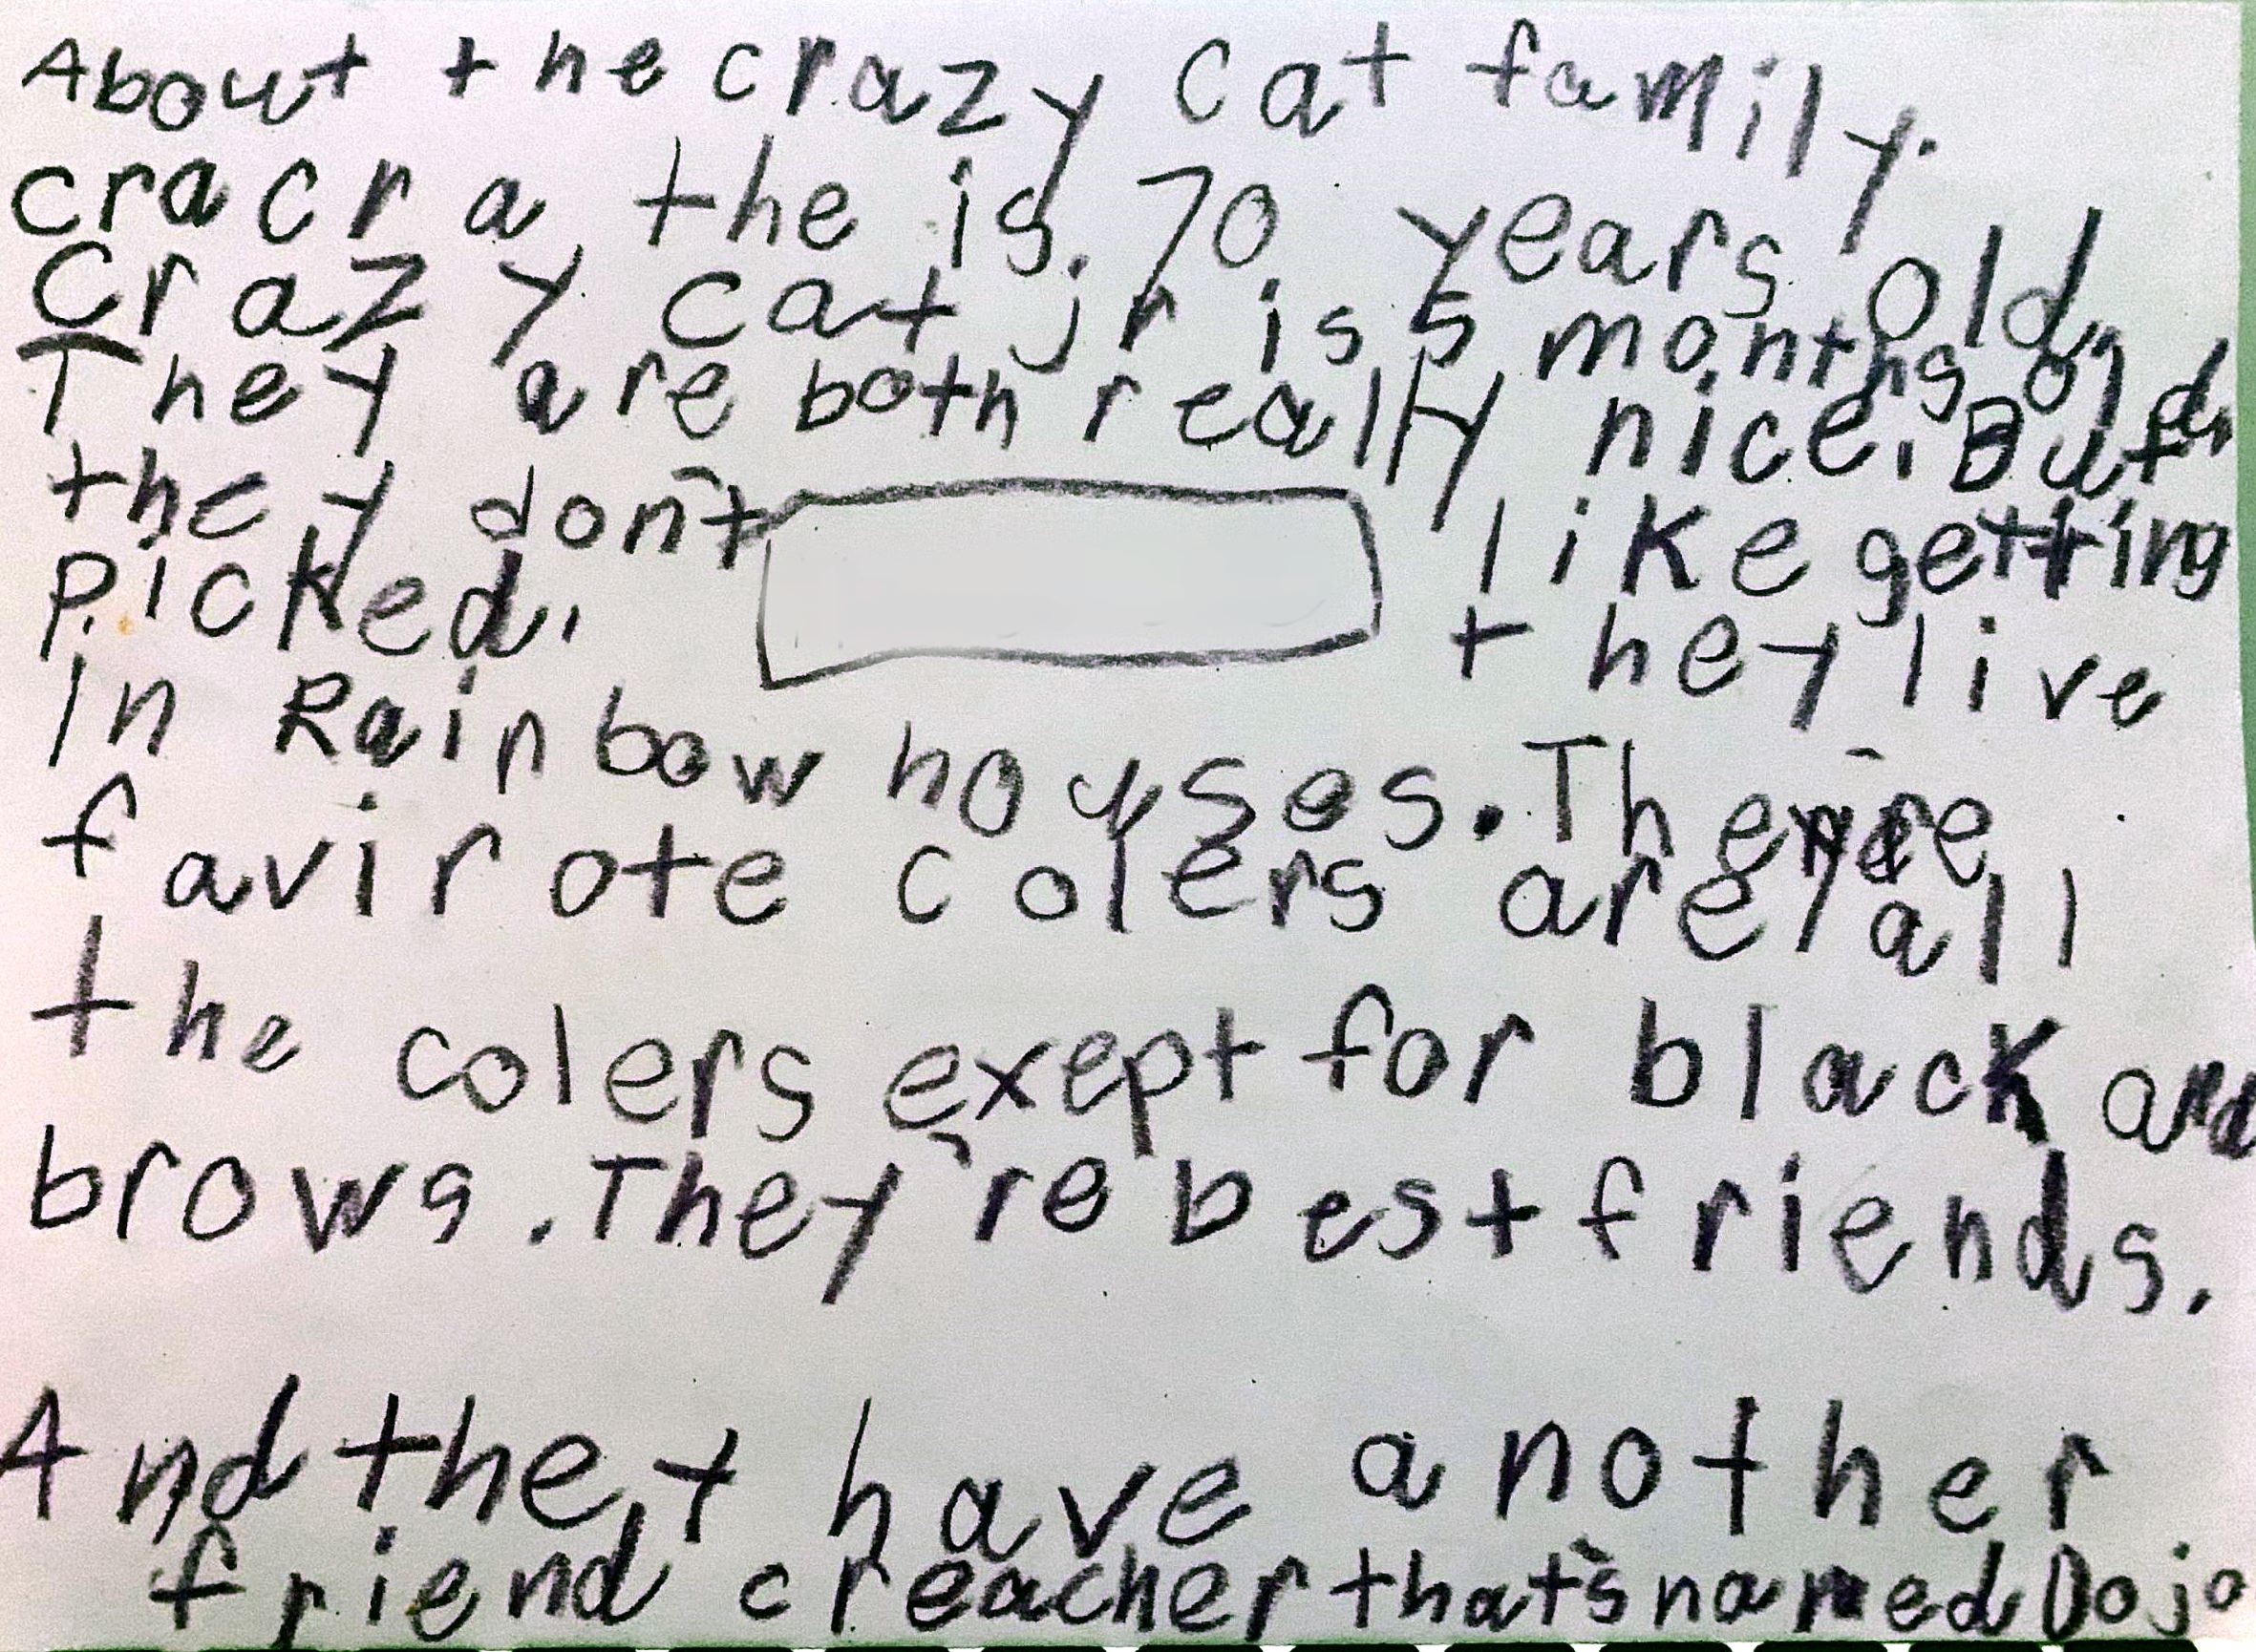 About the crazy cat family.
cracra, the is. 70 years old.
Crazy cat jr is 5 months old.
They are both really nice. But
they don't like getting
picked. they live
in Rainbow houses. There
favirote colers are all
the colers exept for black and
brows. They're best friends.
And they have another
friend creacher that's named Dojo